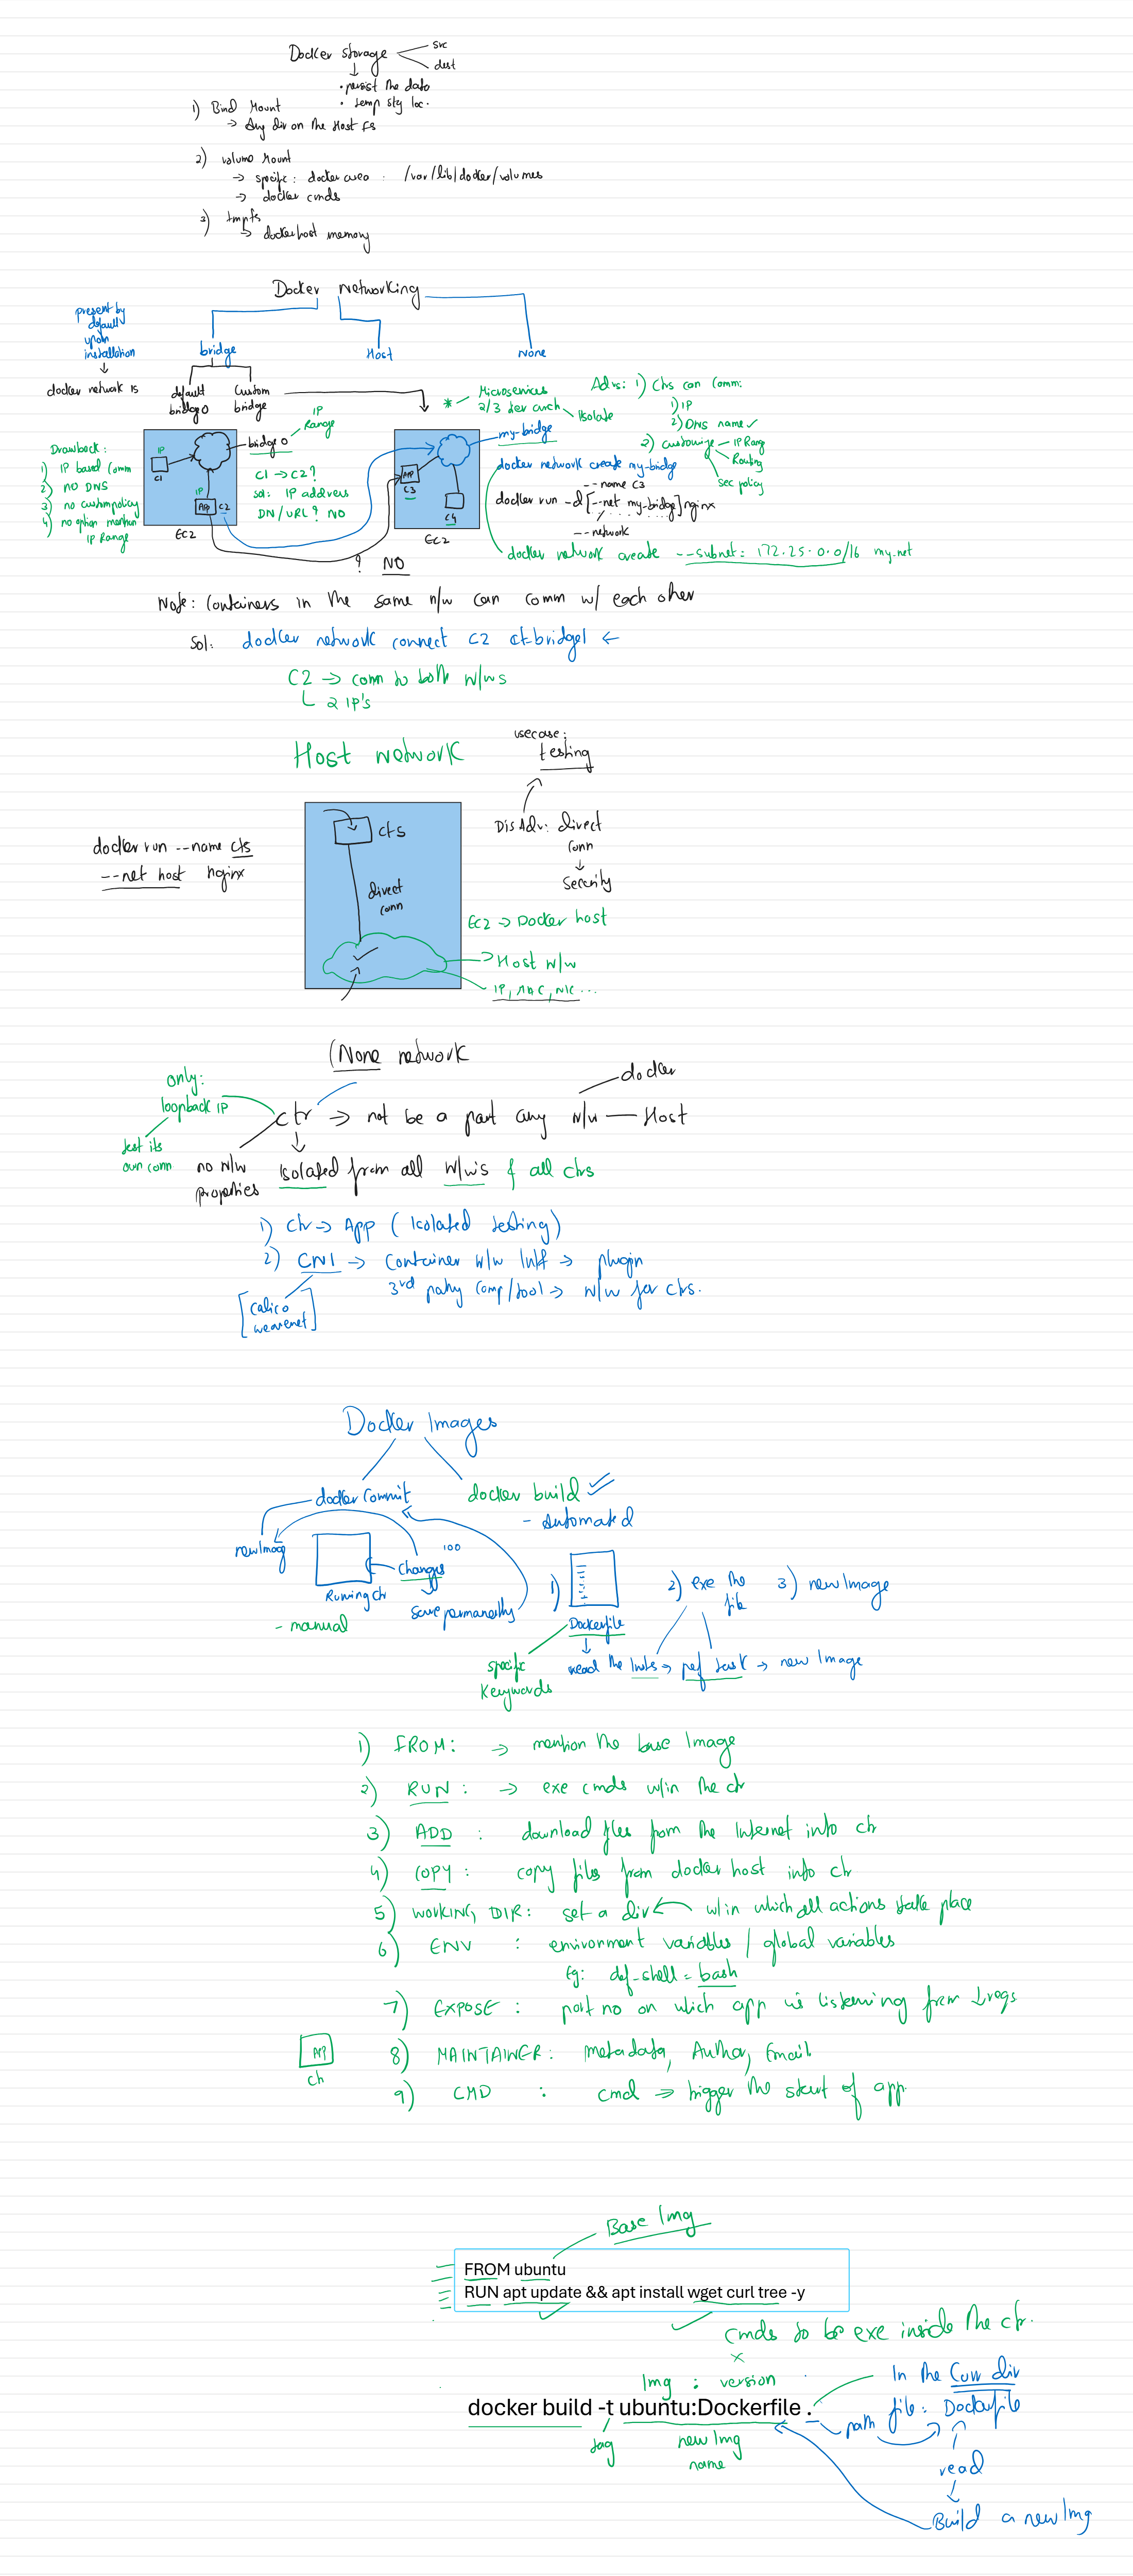 Docker storage
src
dest
• persist the data
• temp stg loc.
1) Bind Mount
→ Any dir on the Host FS
2) volume Mount
→ specific : docker area : /var/lib/docker/volumes
→ docker cmds
3) tmpfs
→ dockerhost memory
Docker networking
present by
default
upon
installation
docker network ls
bridge
Host
None
default
bridge0
Custom
bridge
* Microservices
2/3 tier arch
Isolate
Adv: 1) Ctrs can comm:
1) IP
2) DNS name ✓
2) customize - IP Rang
Routing
Sec policy
Drawback :
1) IP based comm
2) no DNS
3) no custom policy
4) no option mention
IP Range
IP
C1
IP
App C2
EC2
bridge 0
IP
Range
C1 → C2 ?
sol: IP address
DN/URL ? NO
App
C3
C4
EC2
my-bridge
docker network create my-bridge
--name C3
docker run -d [--net my-bridge] nginx
--network
docker network create --subnet: 172.25.0.0/16 my-net
? NO
Note: Containers in the same n/w can comm w/ each other
Sol: docker network connect C2 ct-bridge1 ←
C2 → conn to both N/ws
2 IP's
Host network
usecase:
testing
docker run --name cts
--net host nginx
cts
direct
conn
DisAdv: direct
conn
↓
Security
EC2 → Docker host
Host N/w
IP, MAC, NIC ...
(None network
only:
loopback IP
test its
own conn
ctr → not be a part any n/w — Host
docker
no N/w
properties
Isolated from all N/w's & all ctrs
1) Ctr → App ( Isolated testing)
2) CNI → Container N/w Intf → plugin
3rd party comp/tool → N/w for ctrs.
[Calico
weavenet]
Docker Images
docker commit
docker build ✓✓
- Automated
new Imag
Changes
100
Running ctr
save permanently
- manual
1)
Dockerfile
2) exe the
file
3) new Image
specific
Keywords
read the Insts → perf task → new Image
1) FROM: → mention the base Image
2) RUN : → exe cmds w/in the ctr
3) ADD : download files from the Internet into ctr
4) COPY : copy files from docker host into ctr
5) WORKING DIR: set a dir ← w/in which all actions take place
6) ENV : environment variables / global variables
Eg: def_shell = bash
7) EXPOSE : port no on which app is listening from ↓reqs
App
ctr
8) MAINTAINER: metadata, Author, Email
9) CMD : cmd → trigger the start of app.
Base Img
FROM ubuntu
RUN apt update && apt install wget curl tree -y
cmds to be exe inside the ctr.
Img : version
docker build -t ubuntu:Dockerfile .
tag
new Img
name
In the Curr dir
path
file: Dockerfile
read
↓
Build a new Img